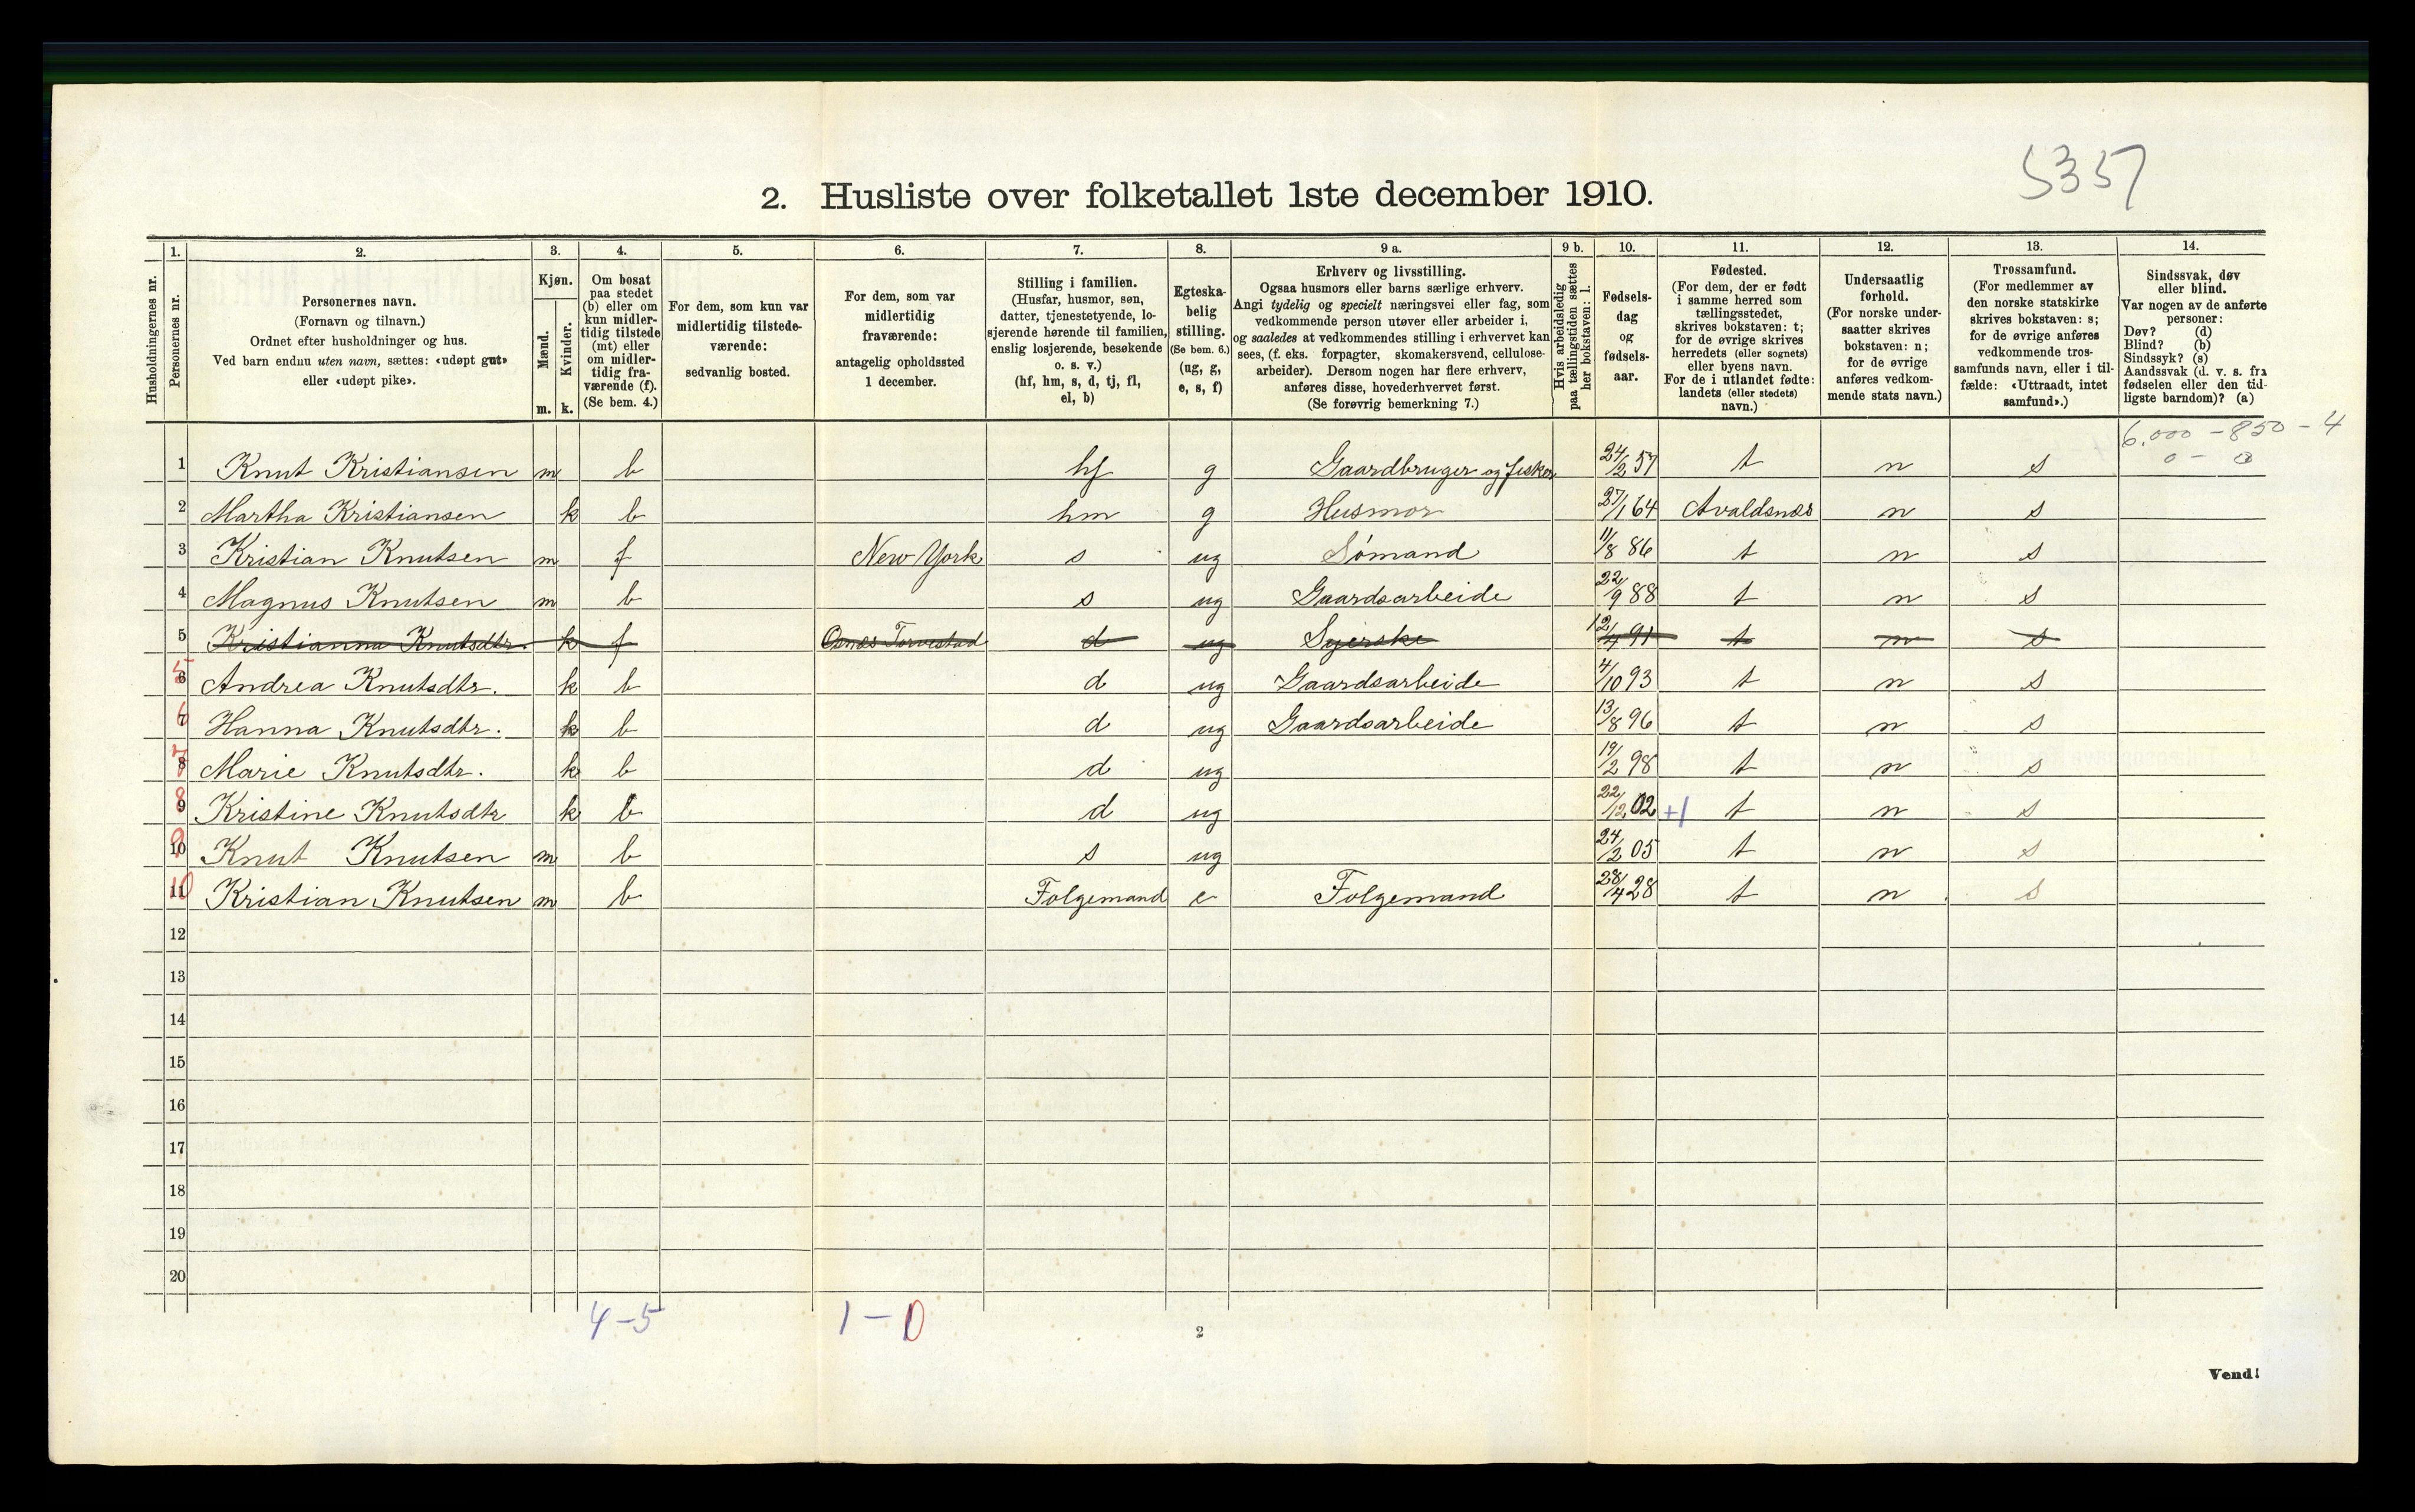 5357
2. Husliste over folketallet 1ste december 1910.
Husholdningernes nr.
1. Personernes nr.
2. Personernes navn. (Fornavn og tilnavn.) Ordnet efter husholdninger og hus. Ved barn endnu uten navn, sættes: «udøpt gut» eller «udøpt pike».
3. Kjøn. Mænd. m. Kvinder. k.
4. Om bosat paa stedet (b) eller om kun midlertidig tilstede (mt) eller om midlertidig fraværende (f). (Se bem. 4.)
5. For dem, som kun var midlertidig tilstedeværende: sedvanlig bosted.
6. For dem, som var midlertidig fraværende: antagelig opholdssted 1 december.
7. Stilling i familien. (Husfar, husmor, søn, datter, tjenestetyende, losjerende hørende til familien, enslig losjerende, besøkende o. s. v.) (hf, hm, s, d, tj, fl, el, b)
8. Egteskabelig stilling. (Se bem. 6.) (ug, g, e, s, f)
9 a. Erhverv og livsstilling. Ogsaa husmors eller barns særlige erhverv. Angi tydelig og specielt næringsvei eller fag, som vedkommende person utøver eller arbeider i, og saaledes at vedkommendes stilling i erhvervet kan sees, (f. eks. forpagter, skomakersvend, cellulosearbeider). Dersom nogen har flere erhverv, anføres disse, hovederhvervet først. (Se forøvrig bemerkning 7.)
9 b. Hvis arbeidsledig paa tællingstiden sættes her bokstaven: l.
10. Fødselsdag og fødselsaar.
11. Fødested. (For dem, der er født i samme herred som tællingsstedet, skrives bokstaven: t; for de øvrige skrives herredets (eller sognets) eller byens navn. For de i utlandet fødte: landets (eller stedets) navn.)
12. Undersaatlig forhold. (For norske undersaatter skrives bokstaven: n; for de øvrige anføres vedkommende stats navn.)
13. Trossamfund. (For medlemmer av den norske statskirke skrives bokstaven: s; for de øvrige anføres vedkommende trossamfunds navn, eller i tilfælde: «Uttraadt, intet samfund».)
14. Sindssvak, døv eller blind. Var nogen av de anførte personer: Døv? (d) Blind? (b) Sindssyk? (s) Aandssvak (d. v. s. fra fødselen eller den tidligste barndom)? (a)
6.000 - 850 - 4
0 - 0
1 Knut Kristiansen m b hf g Gaardbruger og fisker 24/2 57 t n s
2 Martha Kristiansen k b hm g Husmor 27/1 64 Avaldsnes n s
3 Kristian Knutsen m f New York s ug Sømand 11/8 86 t n s
4 Magnus Knutsen m b s ug Gaardsarbeide 22/9 88 t n s
5 Kristianna Knutsdtr. k f Torvestad d ug Syerske 12/4 91 t n s
5 6 Andrea Knutsdtr. k b d ug Gaardsarbeide 4/10 93 t n s
6 7 Hanna Knutsdtr. k b d ug Gaardsarbeide 13/8 96 t n s
7 8 Marie Knutsdtr. k b d ug 19/2 98 t n s
8 9 Kristine Knutsdtr k b d ug 22/12 02 +1 t n s
9 10 Knut Knutsen m b s ug 24/2 05 t n s
10 11 Kristian Knutsen m b Folgemand e Folgemand 28/4 28 t n s
12
13
14
15
16
17
18
19
20
4-5 1-0
2
Vend!